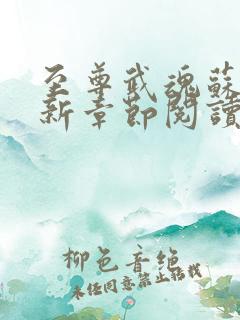 至尊武魂蘇
新章節閱讀
柳色音絶
未经同意禁止转载